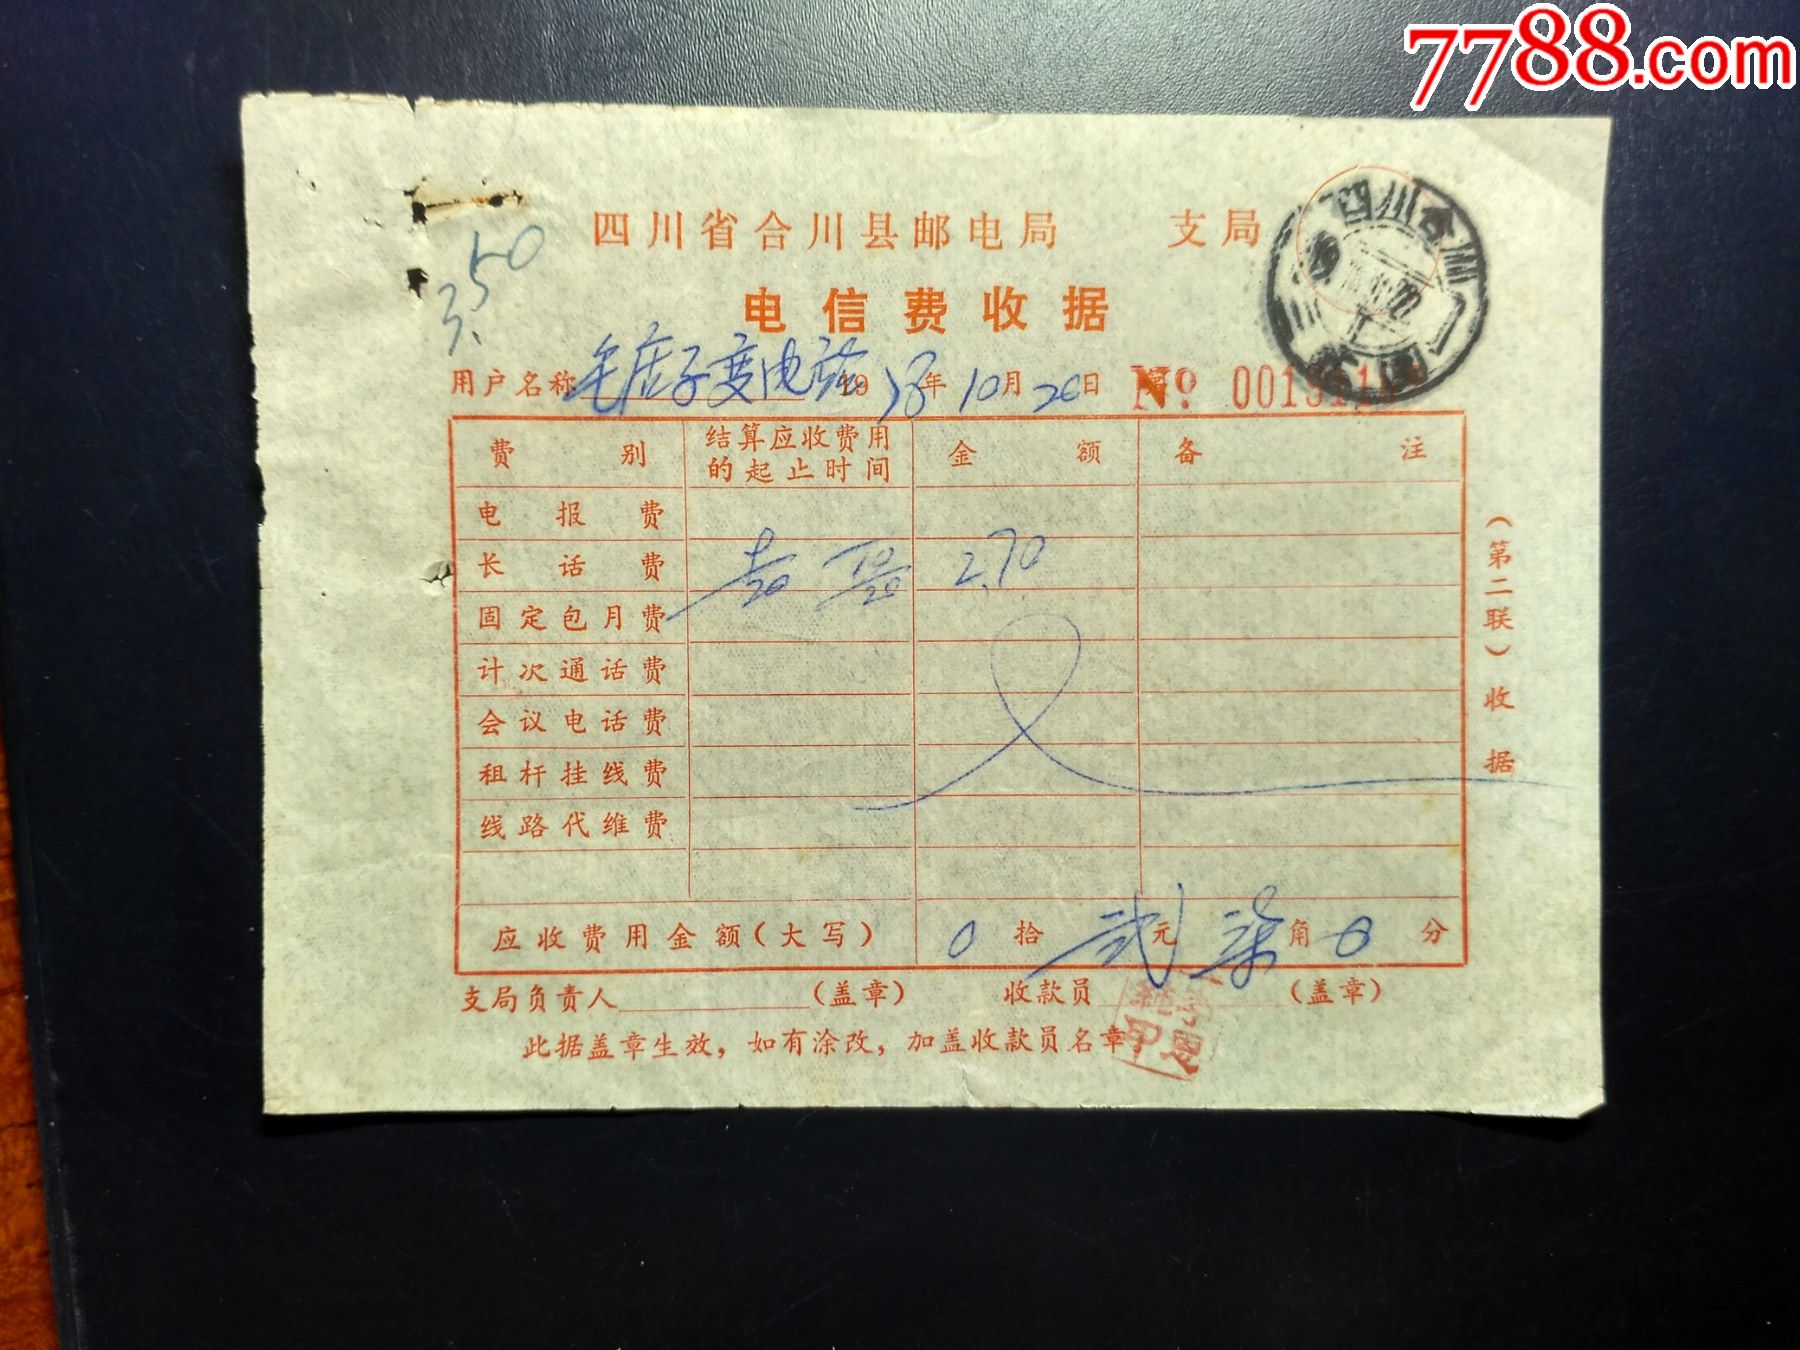 7788.com
四川省合川县邮电局 支局
3.50
电信费收据
用户名称 毛店子变电站 1978年10月20日 No. 001
费别 结算应收费用的起止时间 金额 备注
电报费
长话费 2.70
固定包月费
计次通话费
会议电话费
租杆挂线费
线路代维费
应收费用金额(大写) 0拾贰元柒角0分
支局负责人 (盖章) 收款员 (盖章)
此据盖章生效,如有涂改,加盖收款员名章
(第二联)收据
四川合川